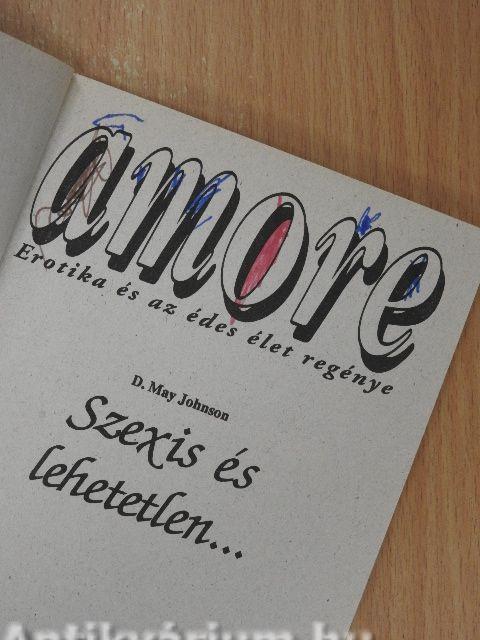 amore
Erotika és az édes élet regénye
D. May Johnson
Szexis és
lehetetlen...
Antikvárium.hu